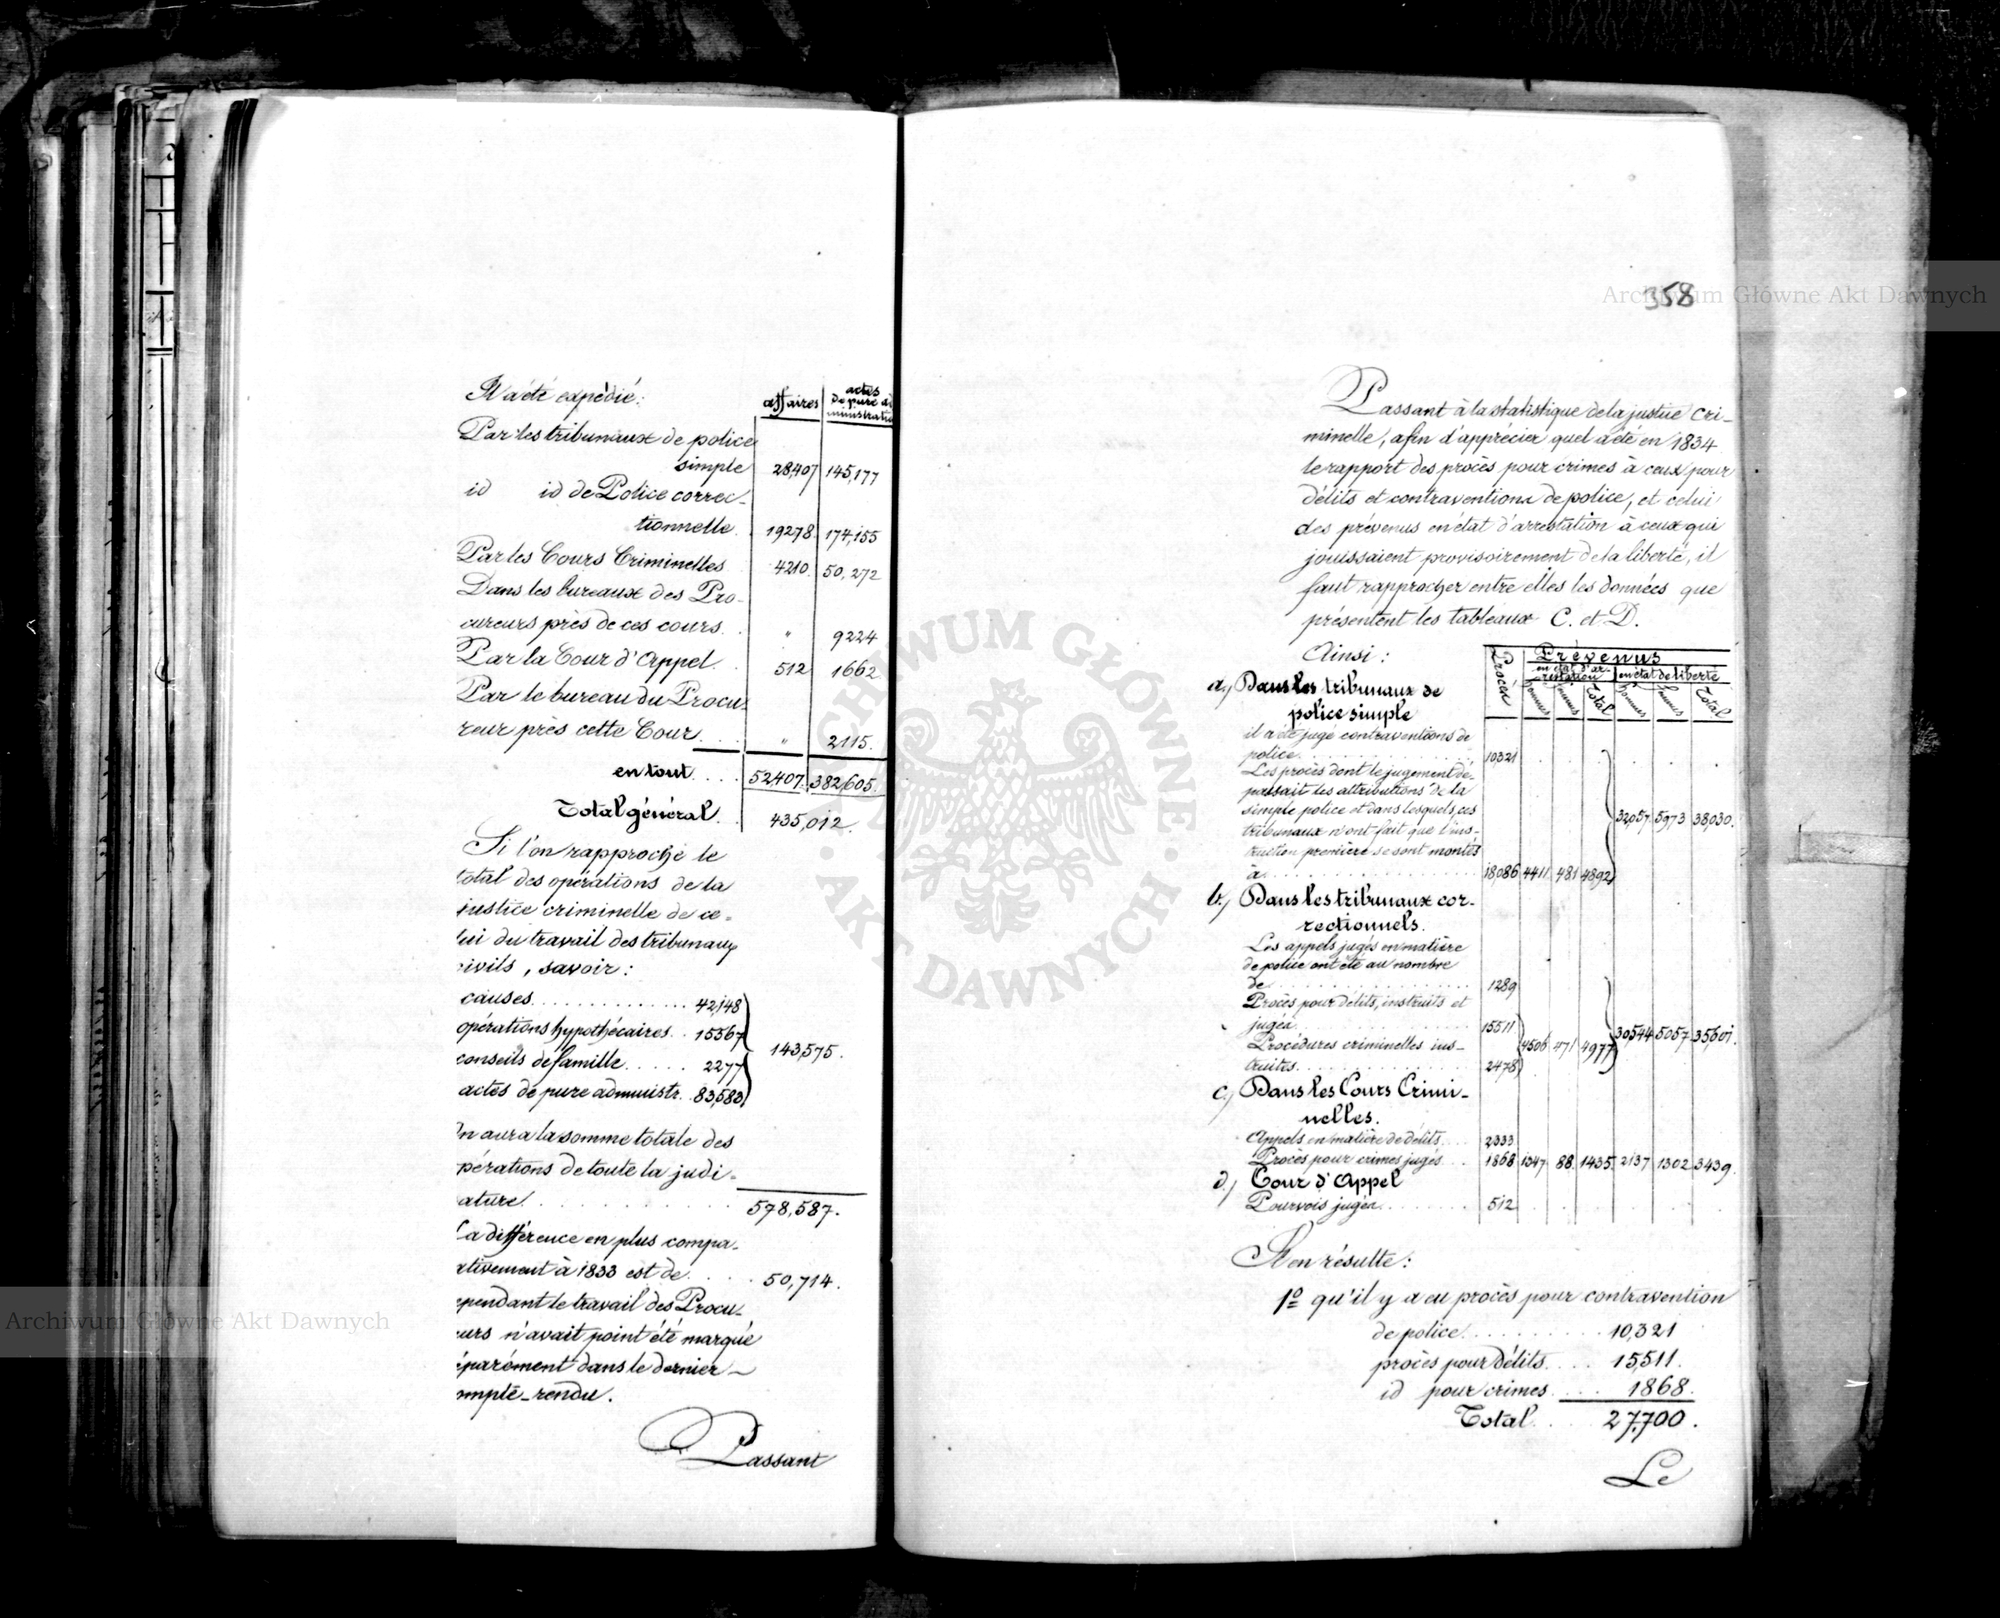 Il a été expédié:
affaires
actes
de pure ad
ministratio
Par les tribunaux de police
simple 28,407 145,177
id id de Police correc-
tionnelle. 19278. 174,155
Par les Cours Criminelles 4210. 50,272
Dans les bureaux des Pro-
cureurs près de ces cours. . " 9224
Par la Cour d'Appel. . 512 1662
Par le bureau du Procu-
reur près cette Cour. . . . " 2115.
en tout. . . . 52,407. 382,605.
Total général. . 435,012.
Si l'on rapproche le
total des opérations de la
justice criminelle de ce-
lui du travail des tribunaux
civils, savoir:
causes. . . . . . . . . . . . . 42,148
opérations hypothécaires. . 15567
conseils de famille. . . . . . 2277
143,575.
actes de pure administr. . 83,583
On aura la somme totale des
pérations de toute la judi-
ature. . . . . . . . . . . . 578,587.
La différence en plus compa-
rativement à 1833 est de. . . . 50,714.
ependant le travail des Procu-
eurs n'avait point été marqué
éparément dans le dernier
ompte-rendu.
Passant
358
Passant à la statistique de la justice cri-
minelle, afin d'apprécier quel a été en 1834
le rapport des procès pour crimes à ceux pour
délits et contraventions de police, et celui
des prévenus en état d'arrestation à ceux qui
jouissaient provisoirement de la liberté, il
faut rapprocher entre elles les données que
présentent les tableaux C. et D.
Ainsi:
Procès
Prévenus
en état d'ar-
restation
en état de liberté
hommes femmes Total hommes femmes Total
a.) Dans les tribunaux de
police simple
il a été jugé contraventions de
police. . . . . . . . . . . 10321
Les procès dont le jugement dé-
passait les attributions de la
simple police et dans lesquels, ces
32,057. 5973 38,030.
tribunaux n'ont fait que l'ins-
truction première se sont montés
à. . . . . . . . . . . 18,086 4411. 481 4892
b.) Dans les tribunaux cor-
rectionnels.
Les appels jugés en matière
de police ont été au nombre
de. . . . . . . . . . . 1289
Procès pour délits, instruits et
jugés. . . . . . . . . . . 15511
30,544 5057. 35,601.
Procédures criminelles ins- 4506 471 4977
truites. . . . . . . . . . . 2478
c.) Dans les Cours Crimi-
nelles.
Appels en matière de délits. . . 2333
Procès pour crimes jugés. . . 1868 1347. 88. 1435. 2137 1302 3439.
d.) Cour d'Appel
Pourvois jugés. . . . . . . . 512
Il en résulte:
1º qu'il y a eu procès pour contravention
de police. . . . . . . . . . 10,321
procès pour délits. . . . 15,511.
id pour crimes. . . . 1868.
Total. . . . 27,700.
Le
Archiwum Główne Akt Dawnych
Archiwum Główne Akt Dawnych
ARCHIWUM GŁÓWNE
AKT DAWNYCH